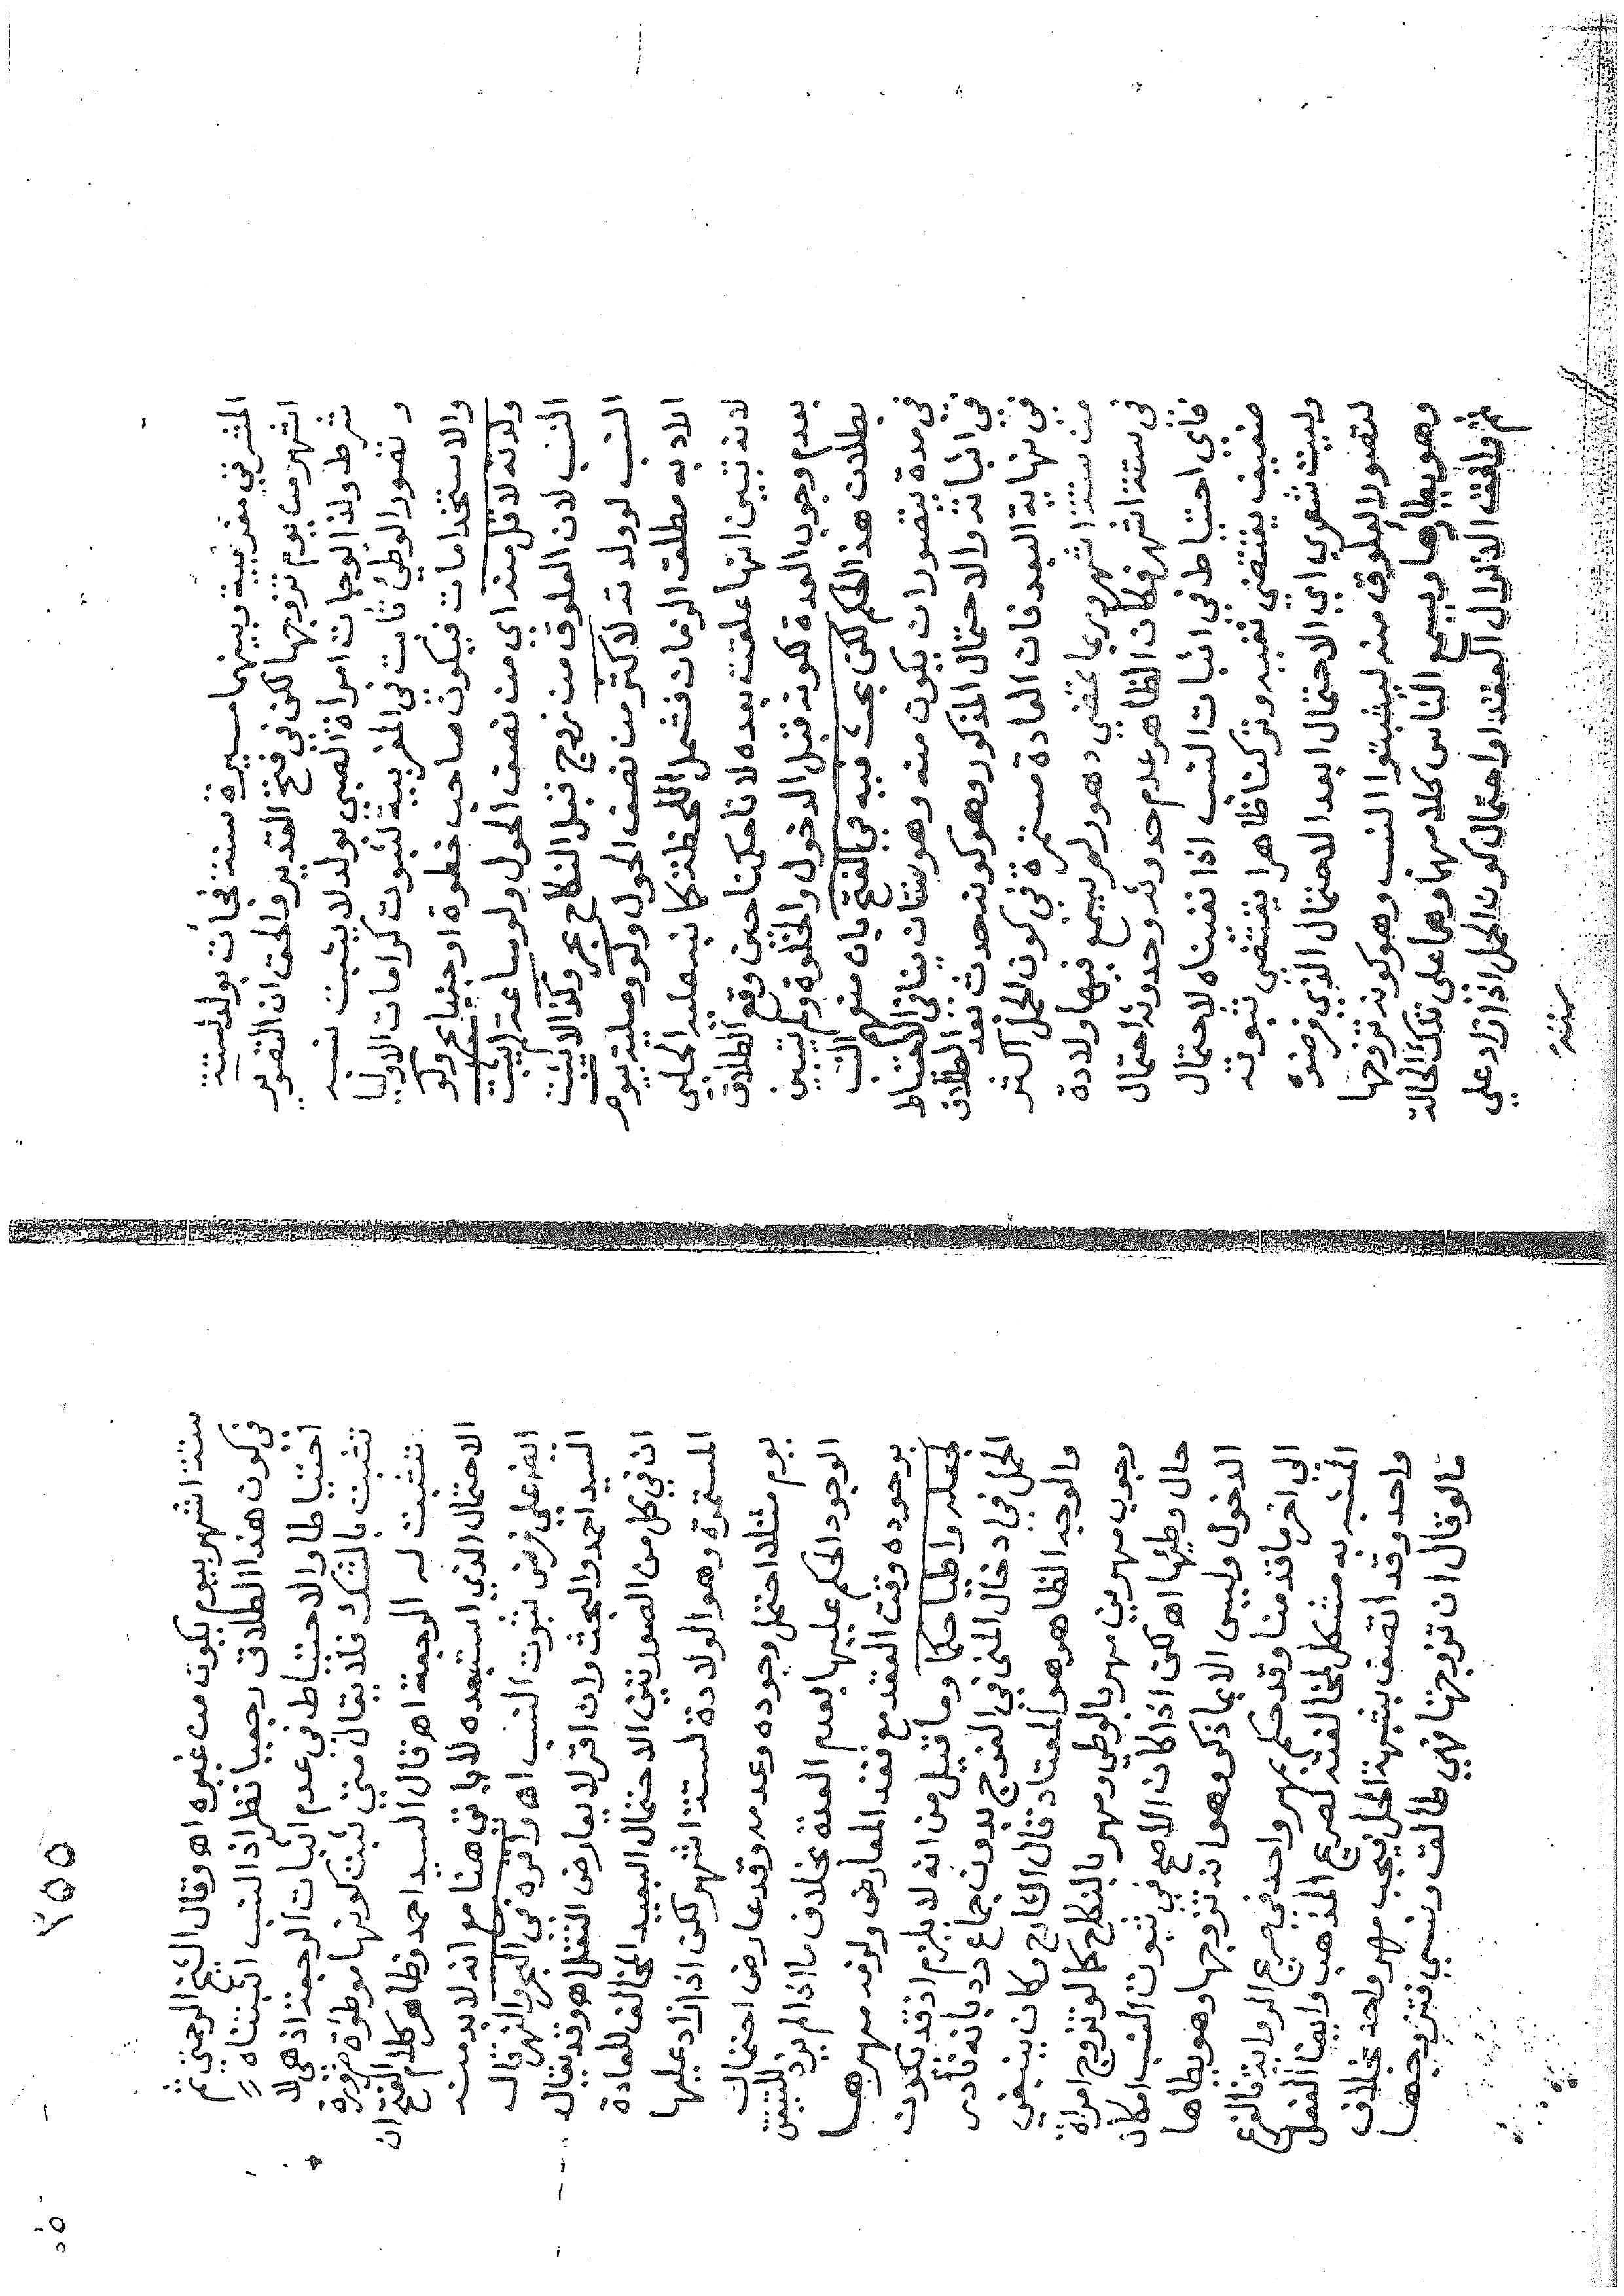 المشرقي مغربية وبينهما مسيرة سنة فجأت بولد لستة
اشهر من يوم تزوجها لكن في فتح القدير والحق ان التصوير
شرط ولذا لوجات امراة الصبي بولد لا يثبت نسبه
وتصور الوطئ ثابت في المغربية لثبوت كرامات الاوليا
والاستخدامات فيكون صاحب خطوة او جنيا بحر ولو
ولدته لاقل منه اي من نصف الحول ولو ساعة لم يثبت
النسب لان العلوق من زوج قبل النكاح بحر وكذا لا يثبت
النسب لو ولدته لاكثر من نصف الحول ولو وصلية بيوم
الاد به مطلق الزمان فشمل اللحظة كما نبه عليه الحلبي
لانه تبين انها علقت بعده لانا حكمنا حين وقع الطلاق
بعدم وجوب العدة لكونه قبل الدخول والخلوة ولم يتبين
بطلان هذا الحكم لكن بحث فيه في الفتح بان منعهم النسب
في مدة يتصور ان يكون منه وهو سنتان ينافي الاحتياط
في اثباته والاحتمال المذكور وهو كونه حدث بعد الطلاق
في نهاية البعد فان العادة مستمرة في كون الحمل اكثر
من ستة اشهر وربما تمضي دهور لم يسمع فيها ولادة
في ستة اشهر فكان الظاهر عدم حدوثه وحدوثه احتمال
فأي احتياط في اثبات النسب اذا نفيناه لاحتمال
ضعيف يقتضي نفيه وتركنا ظاهرا يقتضي ثبوته
وليت شعري اي الاحتمال ابعد الاحتمال الذي فرضوه
لتصور العلوق منه ليثبتوا النسب وهو كونه تزوجها
وهو يطأوها وسمع الناس كلامهما وهما على تلك الحالة
ثم وافق الانزال العقد او احتمال كون الحمل اذا زاد على
ستة
٢٥٥
ستة اشهر بيوم يكون من غيره اه وقال الشيخ الرحمتي ثم
في كون هذا الطلاق رجعيا نظر اذ النسب اثبتناه
احتياطا والاحتياط في عدم اثبات الرجعة اذ هي لا
تثبت بالشك فلا يقال متي ثبت كونها موطوأة ضرورة
تثبت له الرجعة اه قال السيد احمد وظاهر كلام الفتح ان
الاحتمال الذي استبعده لا ياتي هنا مع انه لا بد منه
الفرعلي فرض ثبوت النسب اه واقره في البحر والنهر قال
السيد احمد والبحث وان اقر لا يعارض النقل اه وقد يقال
ان في كل من الصورتين الاحتمال البعيد المخالف للعادة
المستمرة وهو الولادة لستة اشهر لكن اذا زاد عليها
يوم مثلا احتمل وجوده وعدمه وقد عارض احتمال
الوجود الحكم عليها بعدم العدة بخلاف ما اذا لم يزد للتيقن
بوجوده وقت العقد مع فقد المعارض ولزمه مهرها
لجعله واطيا حكما وما قيل من انه لا يلزم اذ قد تكون
الحمل في ادخال المني في الفرج بدون جماع ورد بانه نادر
والوجه الظاهر هو المعتاد قال الشارح وكان ينبغي
وجوب مهرين مهر بالوطي ومهر بالنكاح كما لو تزوج امراة
حال وطيها اه لكن اذا كان الاصح في ثبوت النسب امكان
الدخول وليس الا بما ذكر وهو انه تزوجها وهو يطاها
الي اخر ما قدمنا وقد حكم بمهر واحد في صريح الرواية فالفرع
المشبه به مشكل لمخالفته لصريح المذهب وايضا الفعل
واحد وقد اتصف بشبهة الحل فيجب مهر واحد بخلاف
مالو قال ان تزوجتها فهي طالق ونسي فتزوجها